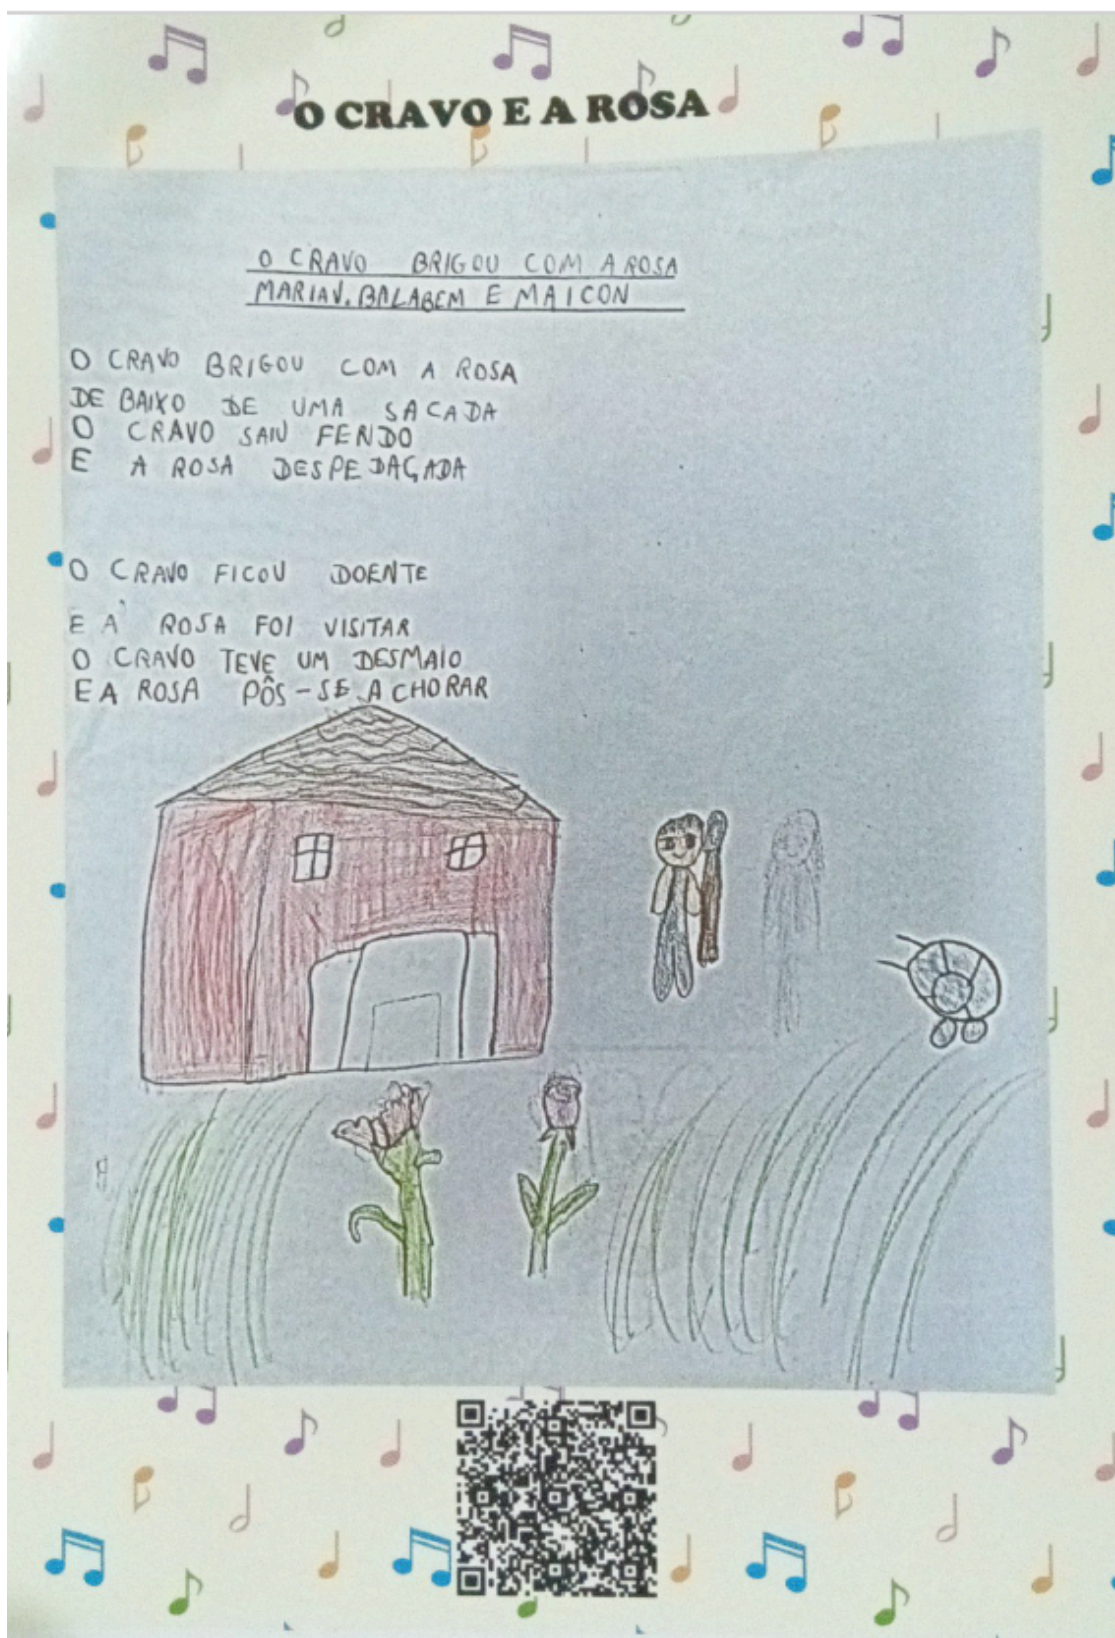 O CRAVO E A ROSA
O CRAVO BRIGOU COM A ROSA
MARIA V. BALABEM E MAICON
O CRAVO BRIGOU COM A ROSA
DE BAIXO DE UMA SACADA
O CRAVO SAIU FERIDO
E A ROSA DESPEDAÇADA
O CRAVO FICOU DOENTE
E A ROSA FOI VISITAR
O CRAVO TEVE UM DESMAIO
E A ROSA PÔS-SE A CHORAR